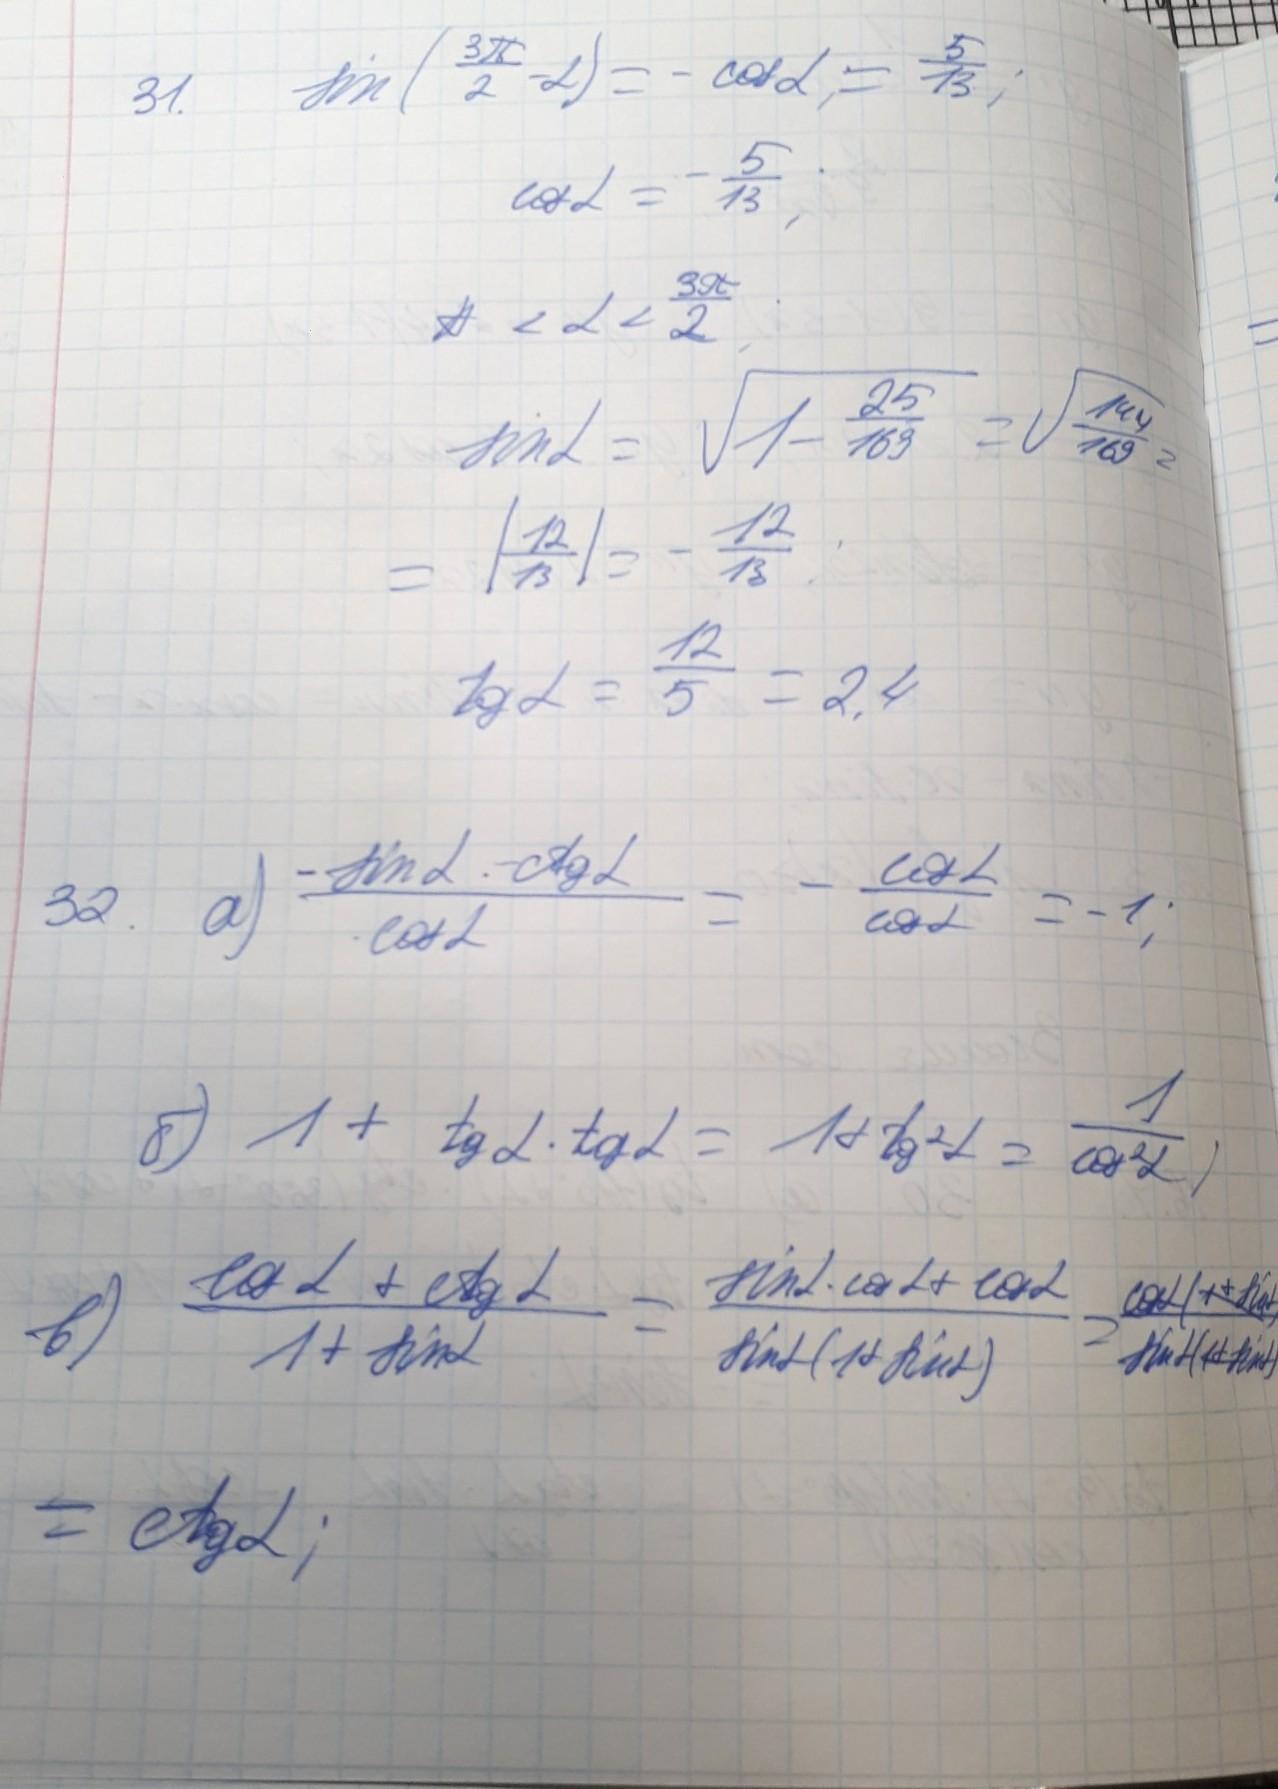 31. sin(3π/2 - α) = - cos α; = 5/13;
cos α = - 5/13;
π < α < 3π/2;
sin α = √(1 - 25/169) = √(144/169) =
= |12/13| = - 12/13;
tg α = 12/5 = 2,4
32. а) (- sin α · - ctg α)/(cos α) = - (cos α)/(cos α) = - 1;
б) 1 + tg α · tg α = 1 + tg² α = 1/(cos² α);
в) (cos α + ctg α)/(1 + sin α) = (sin α · cos α + cos α)/(sin α (1 + sin α)) = (cos α (1 + sin α))/(sin α (1 + sin α))
= ctg α;